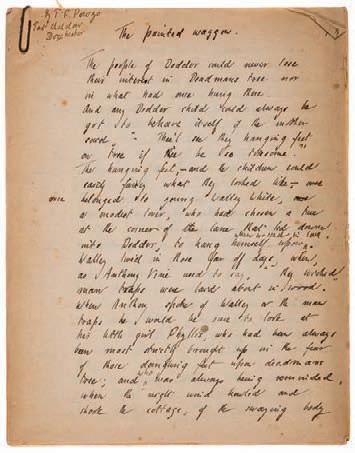 by T. F. Powys
East Chaldon
Dorchester
The painted waggon.
The people of Dodder could never lose
their interest in Deadmans tree nor
in what had once hung there.
And any Dodder child could always be
got to behave itself if the mother
said "Thee'll see they hanging feet
on tree if thee be so tiresome."
The hanging feet, — and the children could
easily fancy what they looked like — once
belonged to young Walley White,
a modest lover, who had chosen a tree
at the corner of the lane that led down
into Dodder, to hang himself upon
Walley lived in those far off days, when,
as Anthony Vine used to say, "they wicked
man traps were laid about in wood."
When Anthony spoke of Walley or the man
traps he would be sure to look at
his little girl Phyllis, who had been always
been most strictly brought up in the fear
of those dangling feet upon deadmans
tree; and was always being reminded,
when the night wind howled and
shook the cottage, of the swaying body